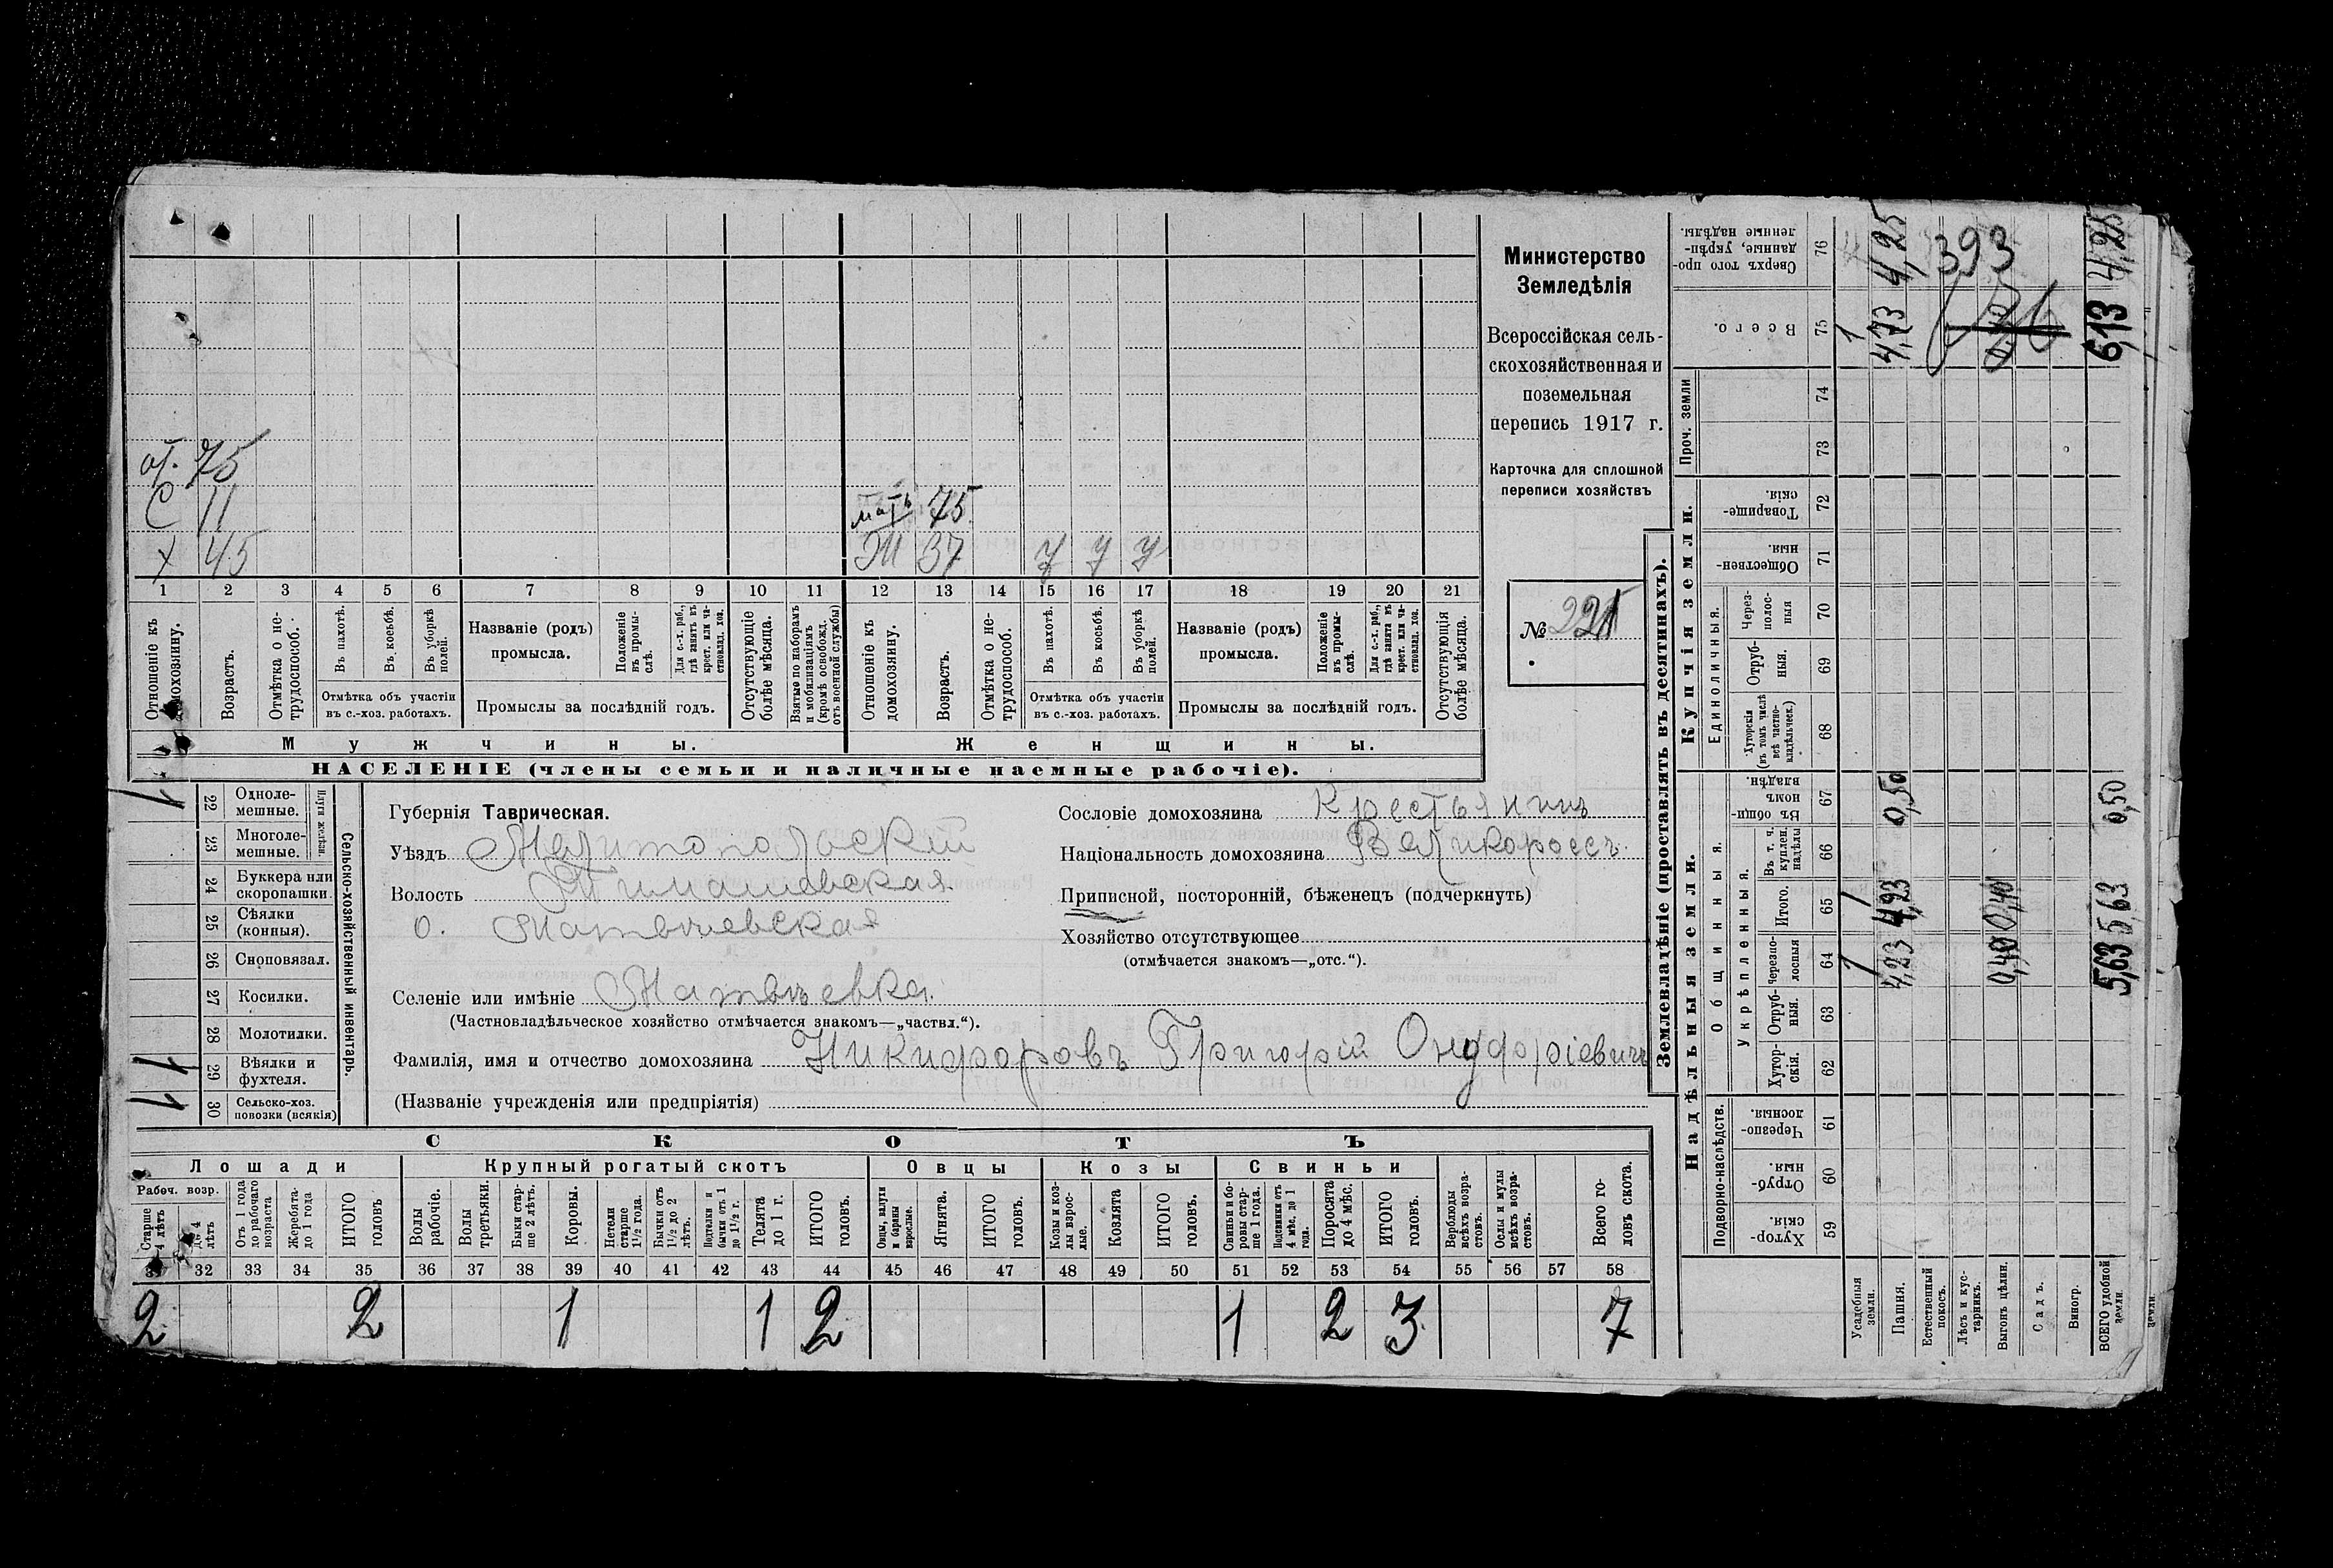 от. 75
С 11
мать 75
х 45
Ж 37 У У У
1 2 3 4 5 6 7 8 9 10 11 12 13 14 15 16 17 18 19 20 21
Отношеніе къ домохозяину.
Возрастъ.
Отмѣтка о не-
трудоспособ.
Въ пахотѣ.
Въ косьбѣ.
Въ уборкѣ полей.
Отмѣтка объ участіи
въ с.-хоз. работахъ.
Названіе (родъ)
промысла.
Положеніе въ промы-
слѣ.
Для с.-х. раб.,
гдѣ занятъ въ
крест. или ча-
стновлад. хоз.
Промыслы за послѣдній годъ.
Отсутствующіе
болѣе мѣсяца.
Взятые по наборамъ
и мобилизаціямъ
(кромѣ освобожд.
отъ военной службы)
Отношеніе къ
домохозяину.
Возрастъ.
Отмѣтка о не-
трудоспособ.
Въ пахотѣ.
Въ косьбѣ.
Въ уборкѣ
полей.
Отмѣтка объ участіи
въ с.-хоз. работахъ.
Названіе (родъ)
промысла.
Положеніе
въ промы-
слѣ.
Для с.-х. раб.,
гдѣ занята въ
крест. или ча-
стновлад. хоз.
Промыслы за послѣдній годъ.
Отсутствующія
болѣе мѣсяца.
Мужчины.
Женщины.
НАСЕЛЕНІЕ (члены семьи и наличные наемные рабочіе).
Министерство
Земледѣлія
Всероссійская сель-
скохозяйственная и
поземельная
перепись 1917 г.
Карточка для сплошной
переписи хозяйствъ
№ 221
Сельско-хозяйственный инвентарь.
1 22 Одноле-
мешные.
23 Многоле-
мешные.
24 Буккера или
скоропашки.
25 Сѣялки
(конныя).
26 Сноповязал.
27 Косилки.
28 Молотилки.
1 29 Вѣялки и
фухтеля.
1 30 Сельско-хоз.
повозки (всякія)
Губернія Таврическая.
Уѣздъ Мелитопольскій
Волость Тимашевская
о. Матвѣевская
Селеніе или имѣніе Матвѣевка.
(Частновладѣльческое хозяйство отмѣчается знакомъ—„частвл.“).
Фамилія, имя и отчество домохозяина Никифоровъ Григорій Онуфріевичъ
(Названіе учрежденія или предпріятія)
Сословіе домохозяина Крестьянинъ
Національность домохозяина Великороссъ.
Приписной, посторонній, бѣженецъ (подчеркнуть)
Хозяйство отсутствующее
(отмѣчается знакомъ—„отс.“).
СКОТЪ
Лошади
Крупный рогатый скотъ
Овцы
Козы
Свиньи
Рабоч. возр.
Старше
4 лѣтъ
до 4
лѣтъ
Отъ 1 года
до рабочаго
возраста
Жеребята-
до 1 года
ИТОГО
головъ
Волы
рабочіе.
Волы
третьяки.
Быки стар-
ше 2 лѣтъ.
Коровы.
Нетели
старше
1½ года.
Бычки отъ
1½ до 2
лѣтъ.
Подтелки и
бычки отъ 1
до 1½ г.
Телята
до 1 г.
ИТОГО
головъ.
Овцы, валухи
и бараны
взрослые.
Ягнята.
ИТОГО
головъ.
Козы и коз-
лы взрос-
лые.
Козлята
ИТОГО
головъ.
Свиньи и бо-
ровы стар-
ше 1 года.
Подсвинки отъ
4 мѣс. до 1
года.
Поросята
до 4 мѣс.
ИТОГО
головъ.
Верблюды
всѣхъ возра-
стовъ.
Ослы и мулы
всѣхъ возра-
стовъ.
Всего го-
ловъ скота.
32 33 34 35 36 37 38 39 40 41 42 43 44 45 46 47 48 49 50 51 52 53 54 55 56 57 58
2 2 1 1 2 1 2 3 7
Землевладѣніе (проставлять въ десятинахъ).
Купчія земли.
Надѣльныя земли.
Проч. земли
Единоличныя.
Общинныя.
Укрѣпленныя.
Подворно-наслѣдств.
Сверхъ того про-
данные, укрѣп-
ленные надѣлы. 76 4,25 4,25
Всего. 75 1 4,73 6,13
393
74
73
Товарище-
скія. 72
Обществен-
ныя. 71
Через-
полос-
ныя 70
Отруб-
ныя. 69
Хуторскія
(въ томъ числѣ
всѣ частно-
владѣльческ.) 68
Въ общин-
номъ
владѣн. 67 0,50 0,50
Въ т. ч.
куплен.
надѣлы 66
Итого. 65 1 4,23 0,40 5,63
Черезпо-
лосныя 64 1 4,23 0,40 5,63
Отруб-
ныя. 63
Хутор-
скія. 62
Черезпо-
лосныя. 61
Отруб-
ныя. 60
Хутор-
скія. 59
Усадебныя
земли.
Пашня.
Естественный
покосъ.
Лѣсъ и кус-
тарникъ.
Выгонъ цѣлин.
Садъ.
Виногр.
ВСЕГО удобной
земли.
земли.